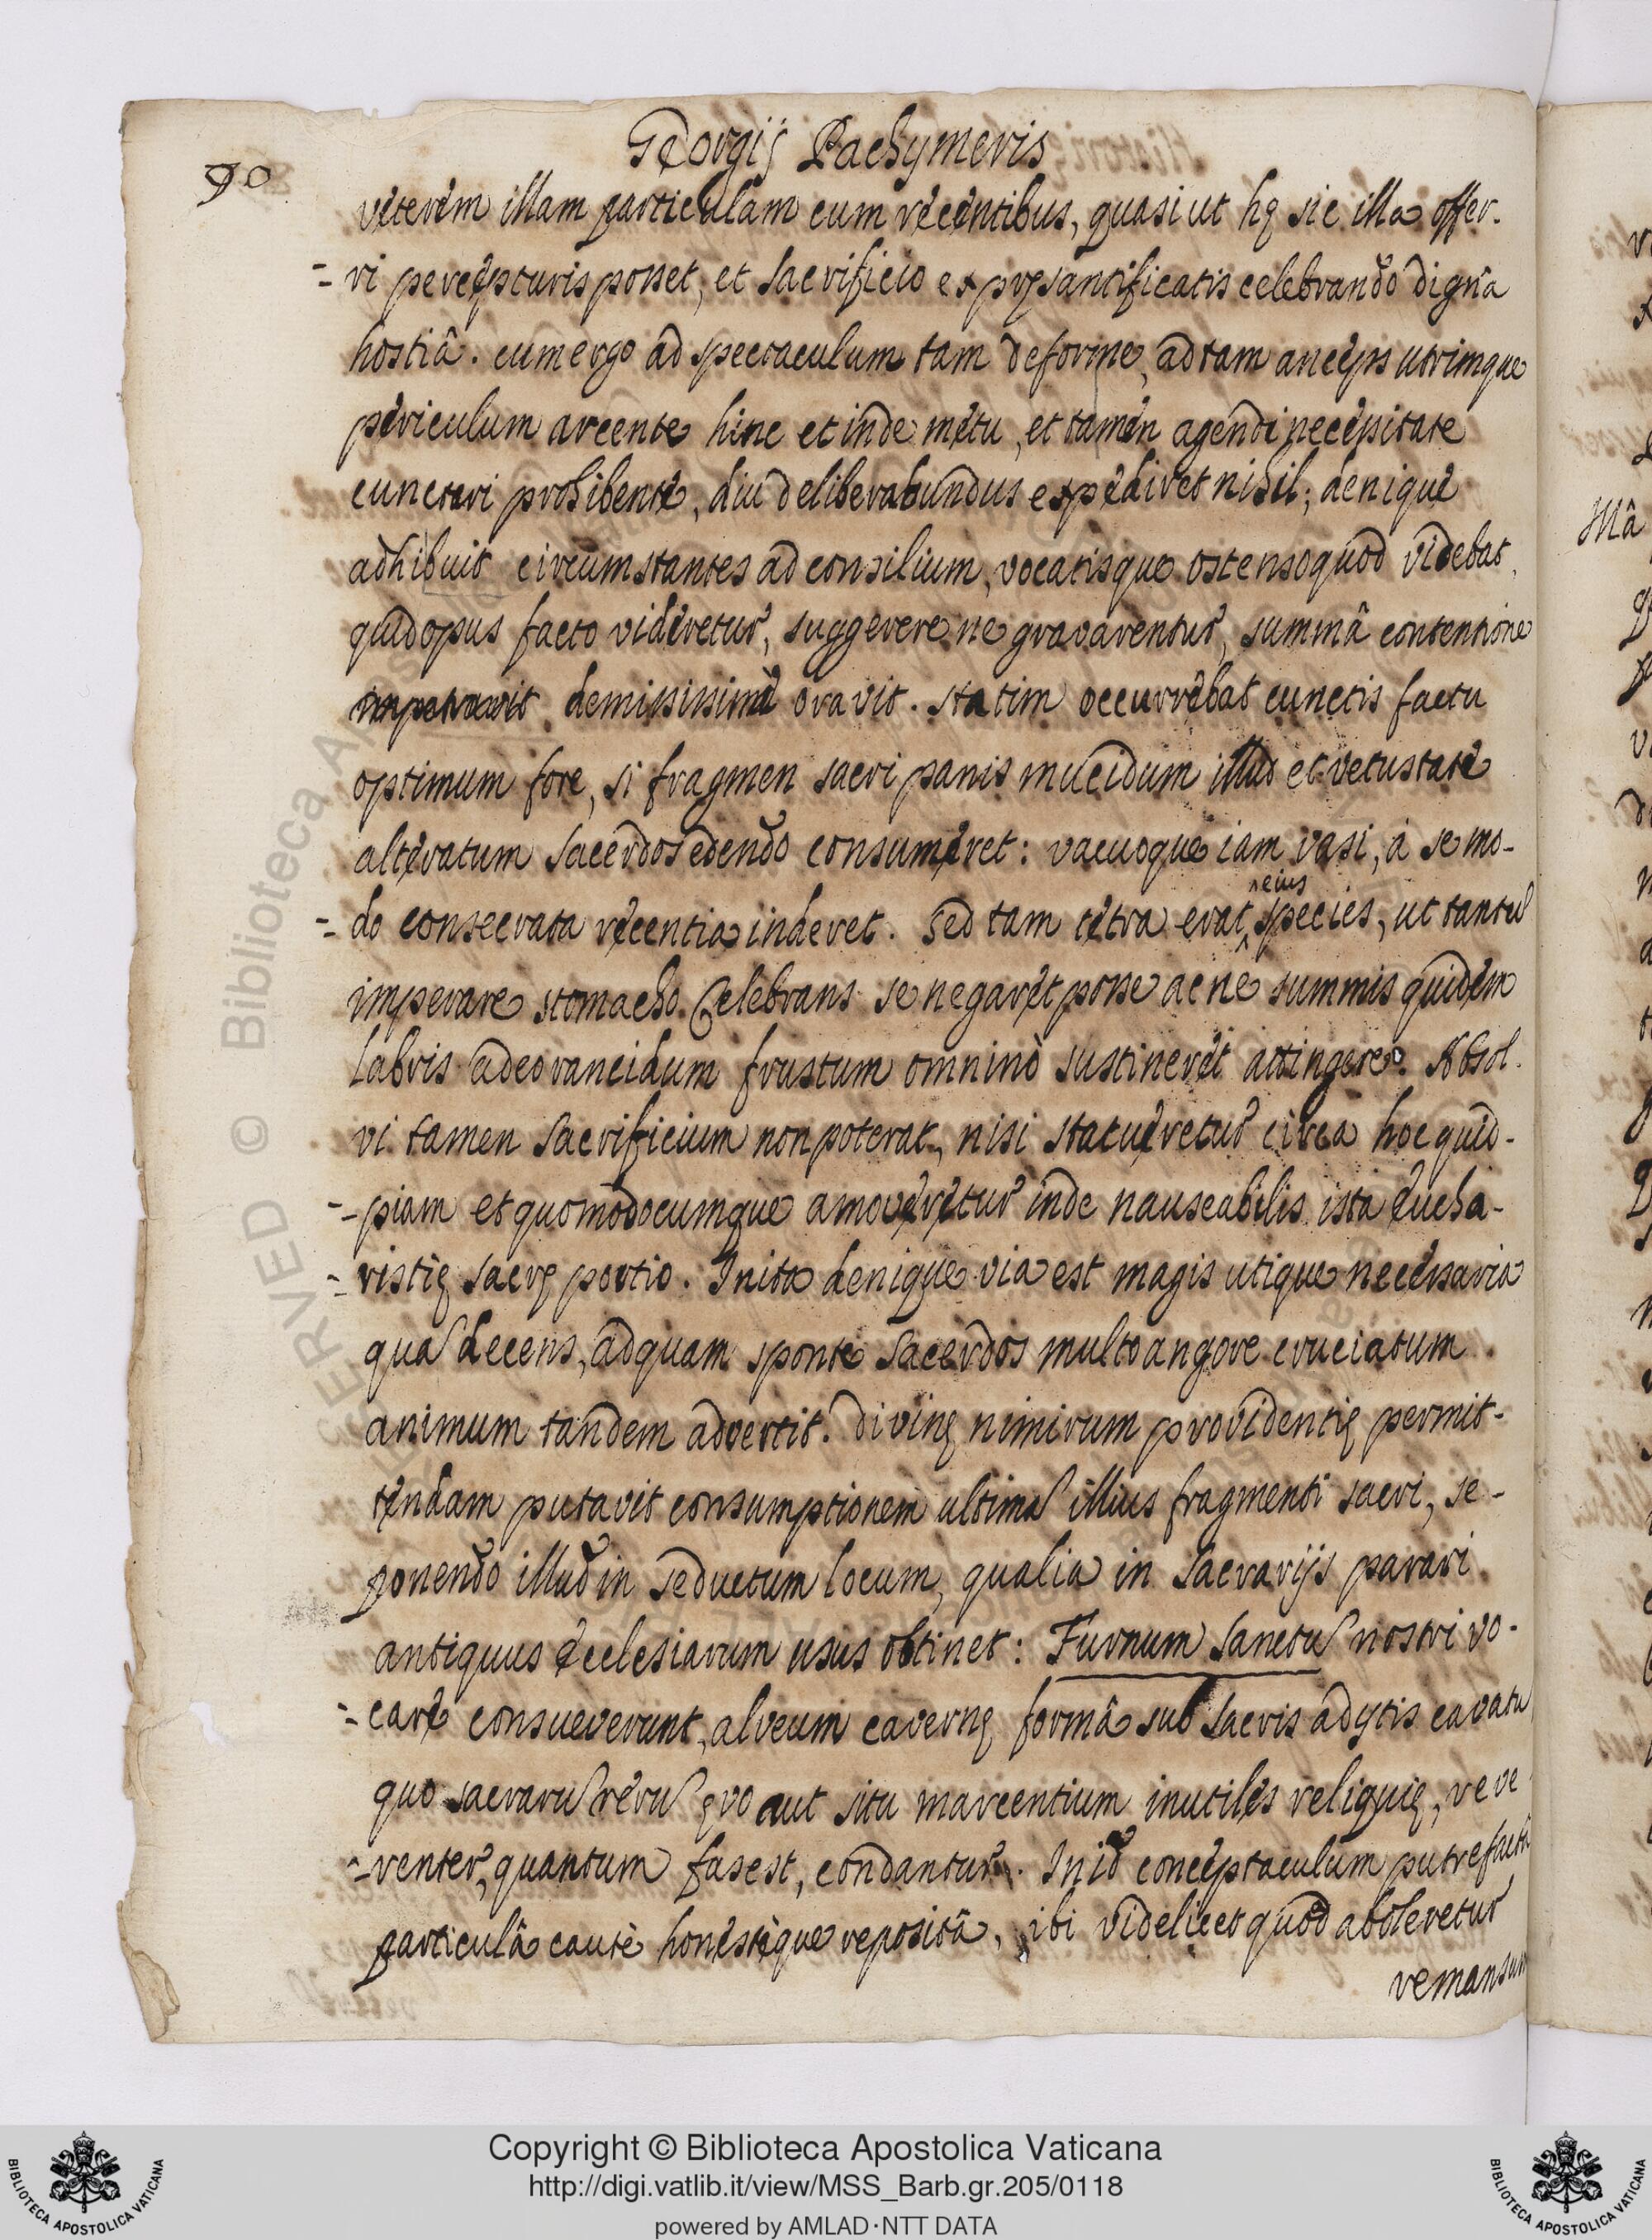 90
Georgij Pachymeris
veterem illam particulam cum recentibus, quasi ut hę sic illa offer-
-ri percepturis posset, et sacrificio ex pręsantificatis celebrando digna
hostiâ. cum ergo ad spectaculum tam deforme, ad tam anceps utrimque
periculum arcente hinc et inde metu, et tamen agendi necessitate
cunctari prohibente, diu deliberabundus expediret nihil; denique
adhibuit circumstantes ad consilium, vocatisque ostenso quod videbat,
quid opus facto videretur, suggerere ne gravarentur, summâ contentione
impetravit demississimè oravit. statim occurrebat cunctis factu
optimum fore, si fragmen sacri panis mucidum illud et vetustate
alteratum sacerdos edendo consumeret: vacuoque iam vasi, à se mo-
-do consecrata recentia inderet. sed tam tetra erat eius species, ut tantũ
imperare stomacho Celebrans se negaret posse ac ne summis quidem
labris adeo rancidum frustum omninò sustineret attingere. Absol-
vi tamen sacrificium non poterat, nisi statueretur circa hoc quid-
-piam et quomodocumque amoveretur inde nauseabilis ista eucha-
-ristię sacrę portio. Inita denique via est magis utique necessaria
quã decens, ad quam sponte sacerdos multo angore cruciatum
animum tandem advertit. divinę nimirum providentię permit-
tendam putavit consumptionem ultimã illius fragmenti sacri, se-
ponendo illud in seductum locum, qualia in sacrarijs parari
antiquus ecclesiarum usus obtinet: Furnum sanctũ nostri vo-
-care consueverunt, alveum cavernę formâ sub sacris adytis cavatũ
quo sacrarũ rerũ ęvo aut situ marcentium inutiles reliquię, reve-
-renter, quantum fas est, condantur. In id conceptaculum putrefactâ
particulâ cautè honestèque repositâ, ibi videlicet quod aboleretur
remansum
Mâ
Copyright © Biblioteca Apostolica Vaticana
http://digi.vatlib.it/view/MSS_Barb.gr.205/0118
powered by AMLAD·NTT DATA
BIBLIOTECA APOSTOLICA VATICANA
BIBLIOTECA APOSTOLICA VATICANA